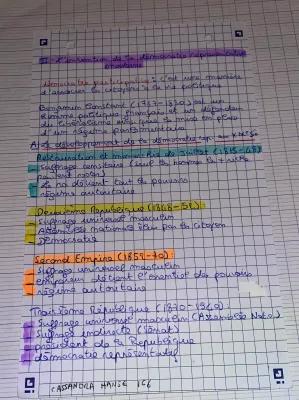 I - L'invention de la démocratie représentative
Démocratie participative : c'est une manière
d'associer le citoyens à la vie politique
Benjamin Constant (1767-1830) est un
homme politique français et un défenseur
du libéralisme
d'un régime parlementaire
A) Le développement de la démocratie rep. au
Restauration et monarchie de Juillet (1815-48)
- Suffrage censitaire (seul les hommes les + riche
- Le roi détient tout le pouvoirs
- régime autoritaire
Deuxième République (1848-52)
- Suffrage universel masculin
- Assemblée nationale élue par les citoyen
- Démocratie
Second Empire (1852-70) :
- Suffrage universel masculin
- empereur détient l'essentiel des pouvoirs
- régime autoritaire
Troisième République (1870-1940) :
- Suffrage universel masculin (Assemblée Nat.)
- Suffrage indirecte (Sénat)
- président de la République
- démocratie représentatif
CASSANDRA